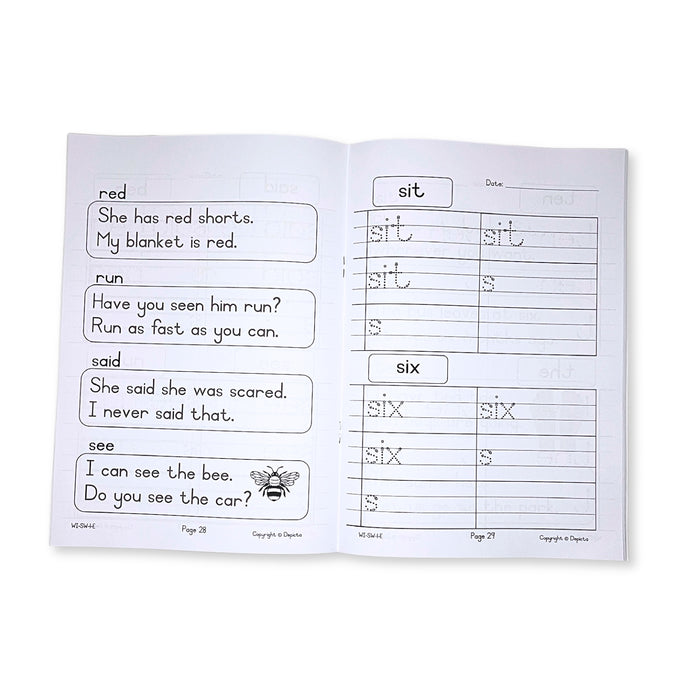 red
She has red shorts.
My blanket is red.
run
Have you seen him run?
Run as fast as you can.
said
She said she was scared.
I never said that.
see
I can see the bee.
Do you see the car?
WI-SW-I-E Page 28 Copyright © Depicta
sit
Date:
sit sit
sit s
s
six
six six
six s
s
WI-SW-I-E Page 29 Copyright © Depicta